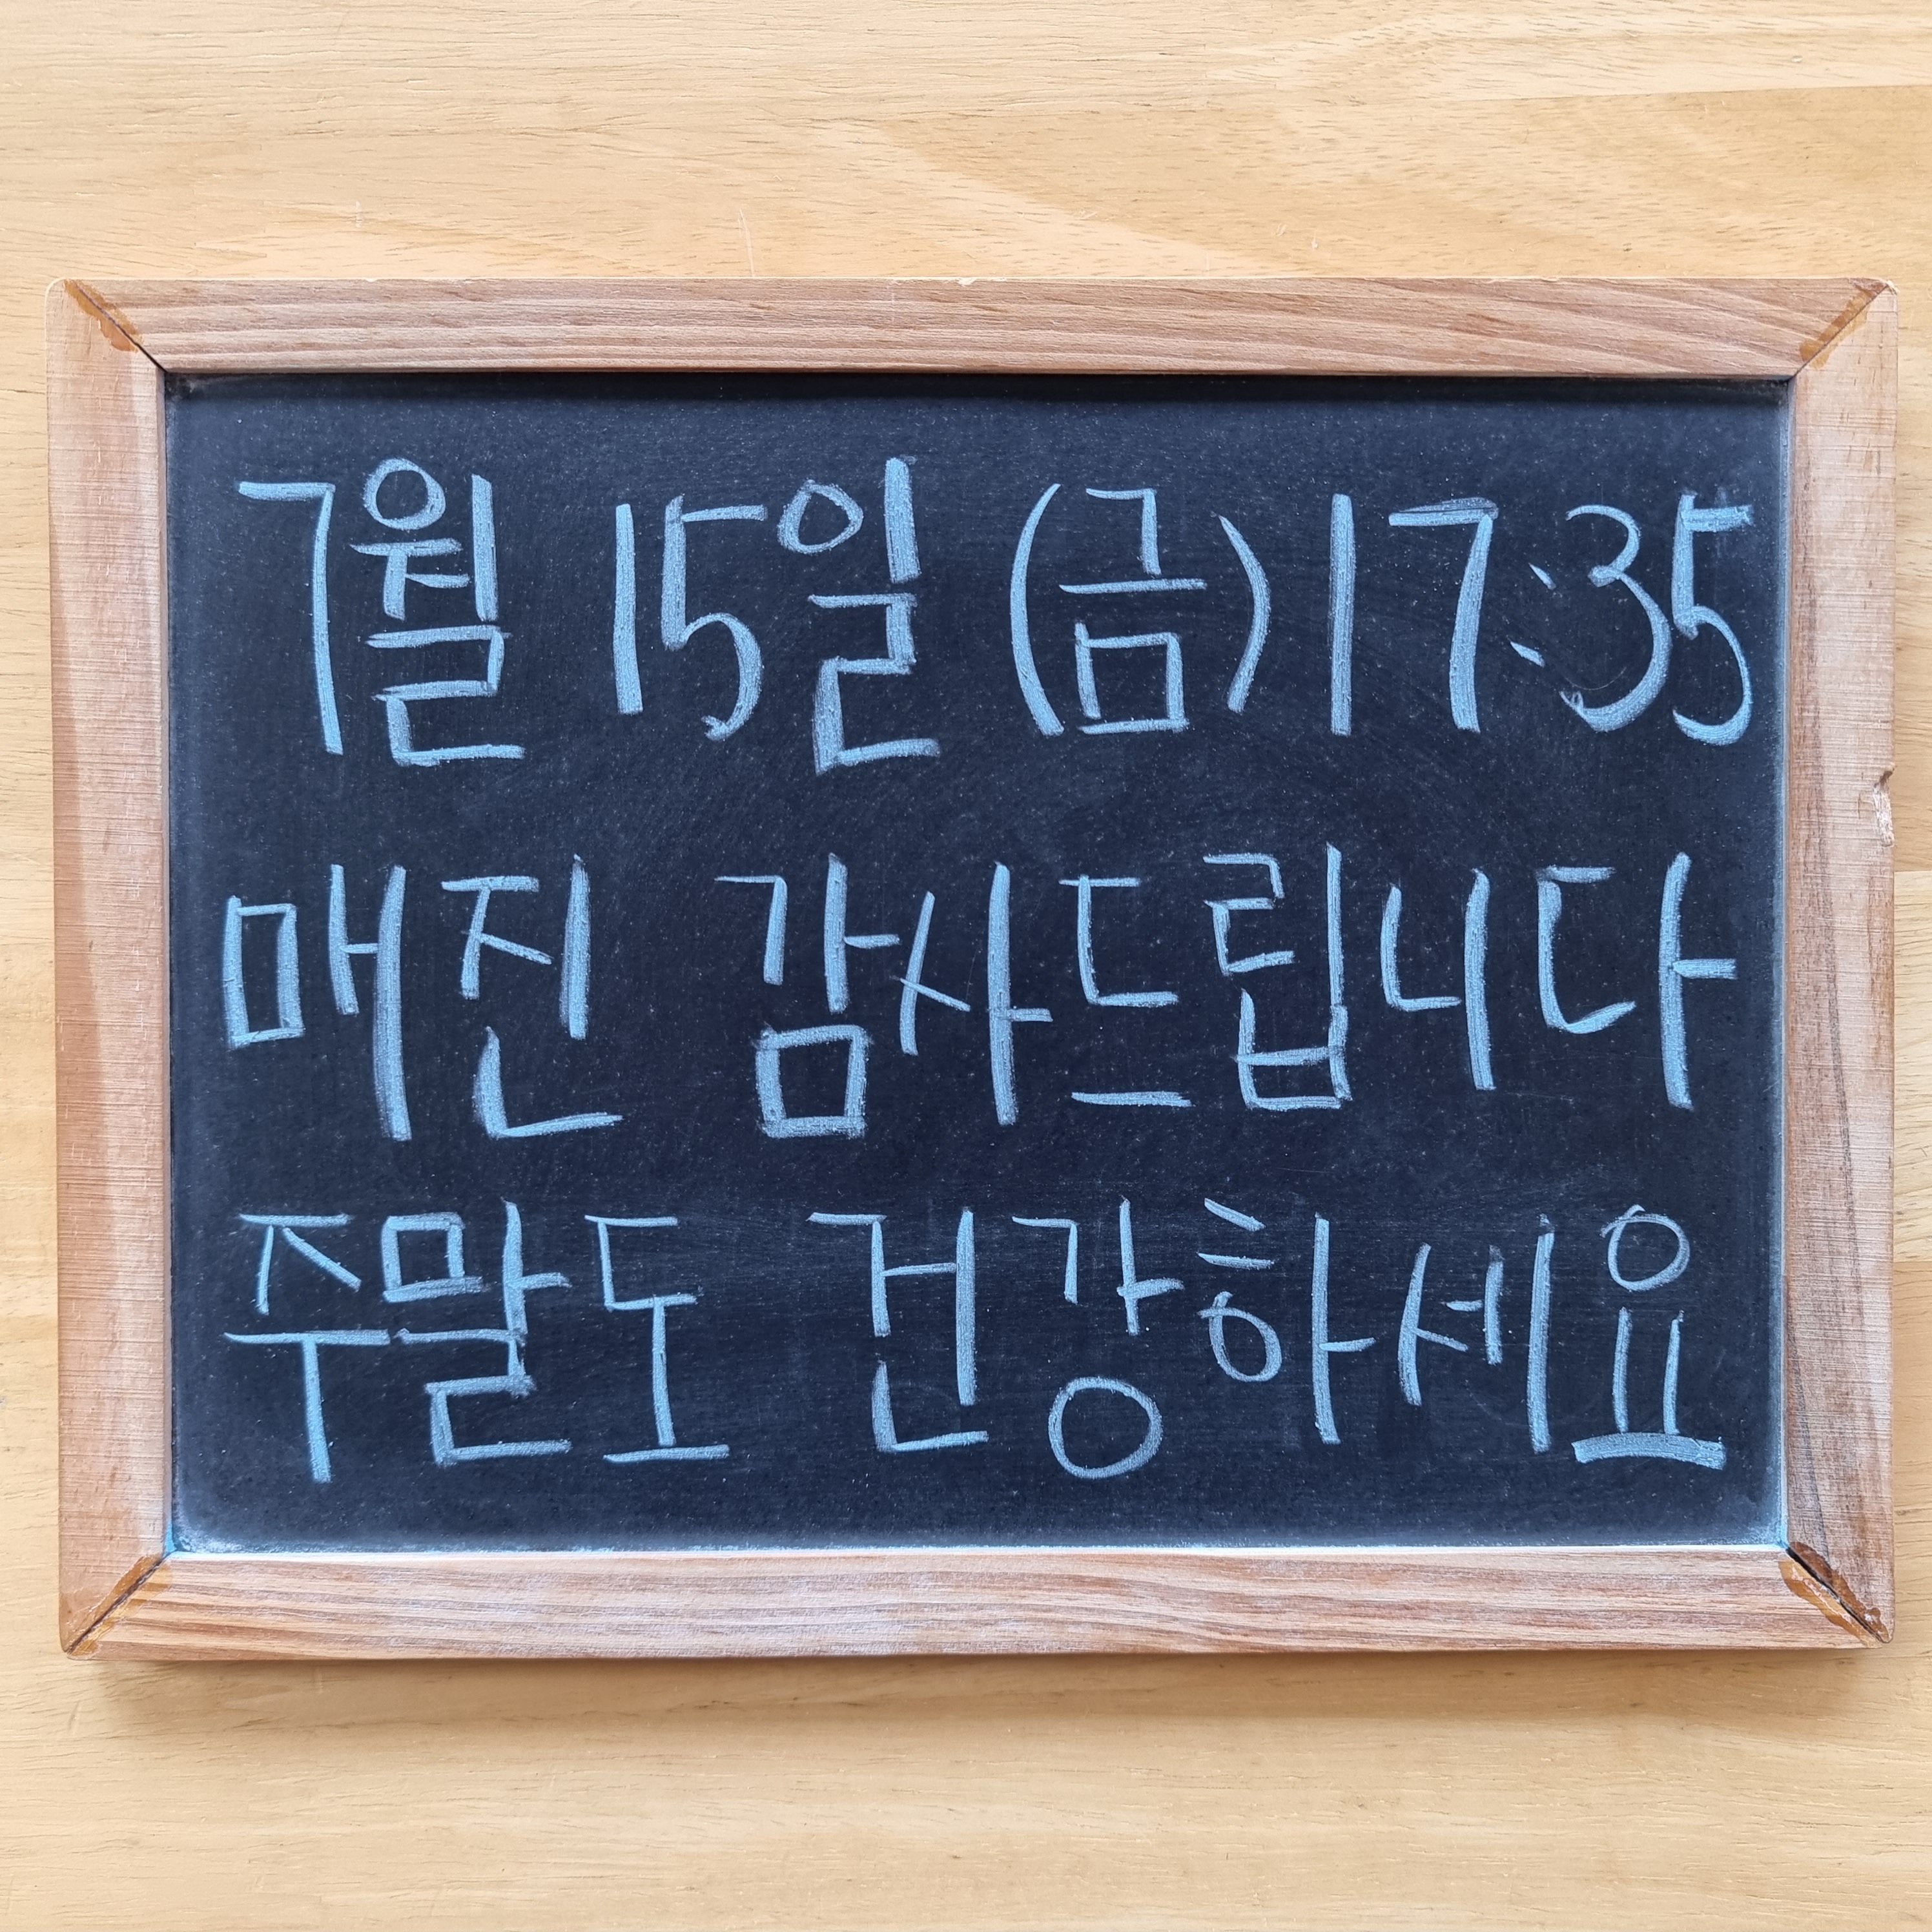 7월 15일 (금) 17:35
매진 감사드립니다
주말도 건강하세요